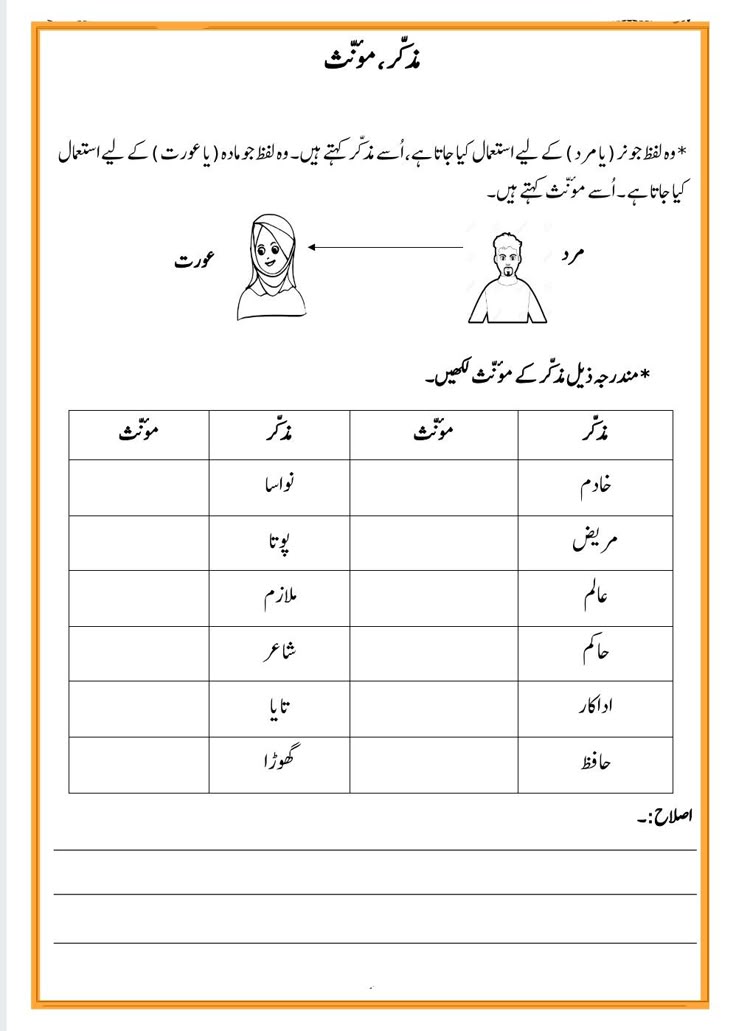 مذکّر، مؤنّث
*وہ لفظ جو نر (یا مرد) کے لیے استعمال کیا جاتا ہے، اُسے مذکّر کہتے ہیں۔ وہ لفظ جو مادہ (یا عورت) کے لیے استعمال
کیا جاتا ہے۔ اُسے مؤنّث کہتے ہیں۔
مرد عورت
*مندرجہ ذیل مذکّر کے مؤنّث لکھیں۔
مذکّر مؤنّث مذکّر مؤنّث
خادم نواسا
مریض پوتا
عالم ملازم
حاکم شاعر
اداکار تایا
حافظ گھوڑا
اصلاح:۔